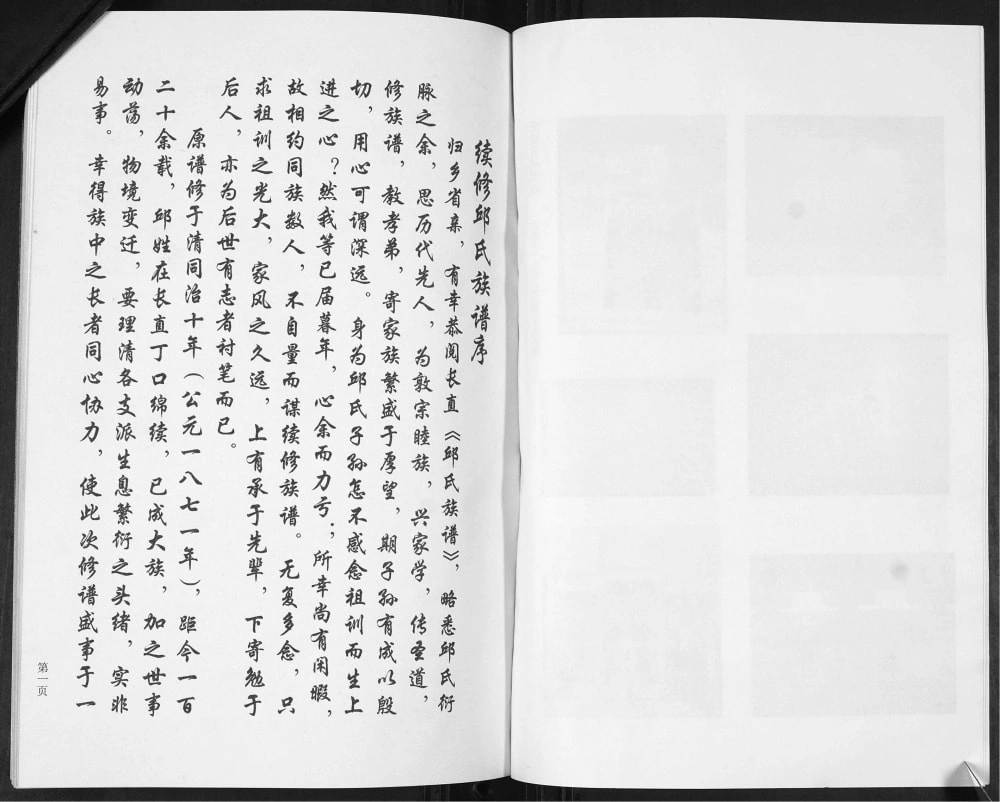 续修邱氏族谱序
归乡省亲，有幸恭阅长直《邱氏族谱》，略悉邱氏衍
脉之余，思历代先人，为敦宗睦族，兴家学，传圣道，
修族谱，教孝弟，寄家族繁盛于厚望，期子孙有成以殷
切，用心可谓深远。身为邱氏子孙怎不感念祖训而生上
进之心？然我等已届暮年，心余而力亏；所幸尚有闲暇，
故相约同族数人，不自量而谋续修族谱。无复多念，只
求祖训之光大，家风之久远，上有承于先辈，下寄勉于
后人，亦为后世有志者衬笔而已。
原谱修于清同治十年（公元一八七一年），距今一百
二十余载，邱姓在长直丁口绵续，已成大族，加之世事
动荡，物境变迁，要理清各支派生息繁衍之头绪，实非
易事。幸得族中之长者同心协力，使此次修谱盛事于一
第一页